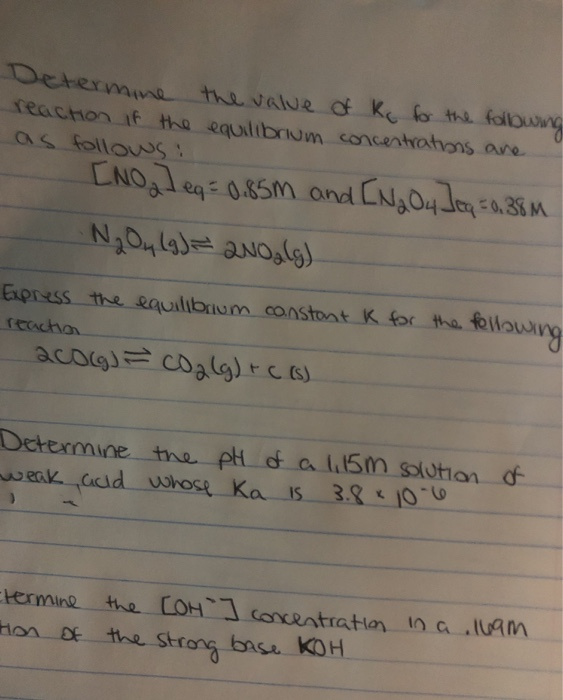 Determine the value of Kc for the following
reaction if the equilibrium concentrations are
as follows:
[NO2]eq = 0.85M and [N2O4]eq = 0.38M
N2O4(g) ⇌ 2NO2(g)
Express the equilibrium constant K for the following
reaction
2CO(g) ⇌ CO2(g) + C(s)
Determine the pH of a 1.15M solution of
weak acid whose Ka is 3.8 x 10-6
termine the [OH-] concentration in a .169M
tion of the strong base KOH